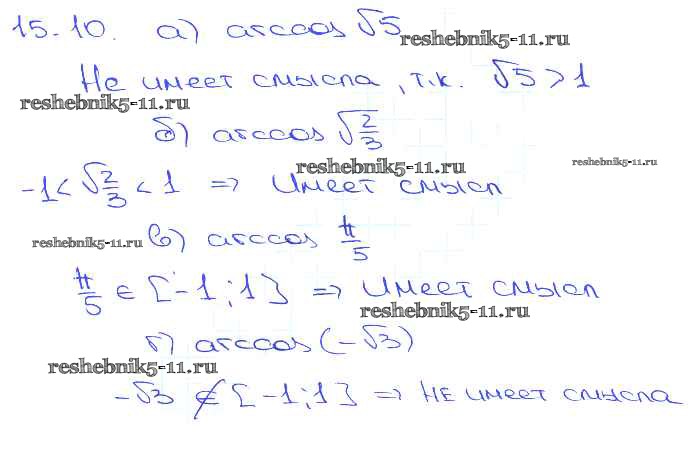 15.10. а) arccos √5
reshebnik5-11.ru
Не имеет смысла, т.к. √5 > 1
reshebnik5-11.ru
б) arccos √2/3
reshebnik5-11.ru
reshebnik5-11.ru
-1 < √2/3 < 1 => Имеет смысл
reshebnik5-11.ru
в) arccos π/5
π/5 ∈ [-1;1] => Имеет смысл
reshebnik5-11.ru
г) arccos(-√3)
reshebnik5-11.ru
-√3 ∉ [-1;1] => не имеет смысла